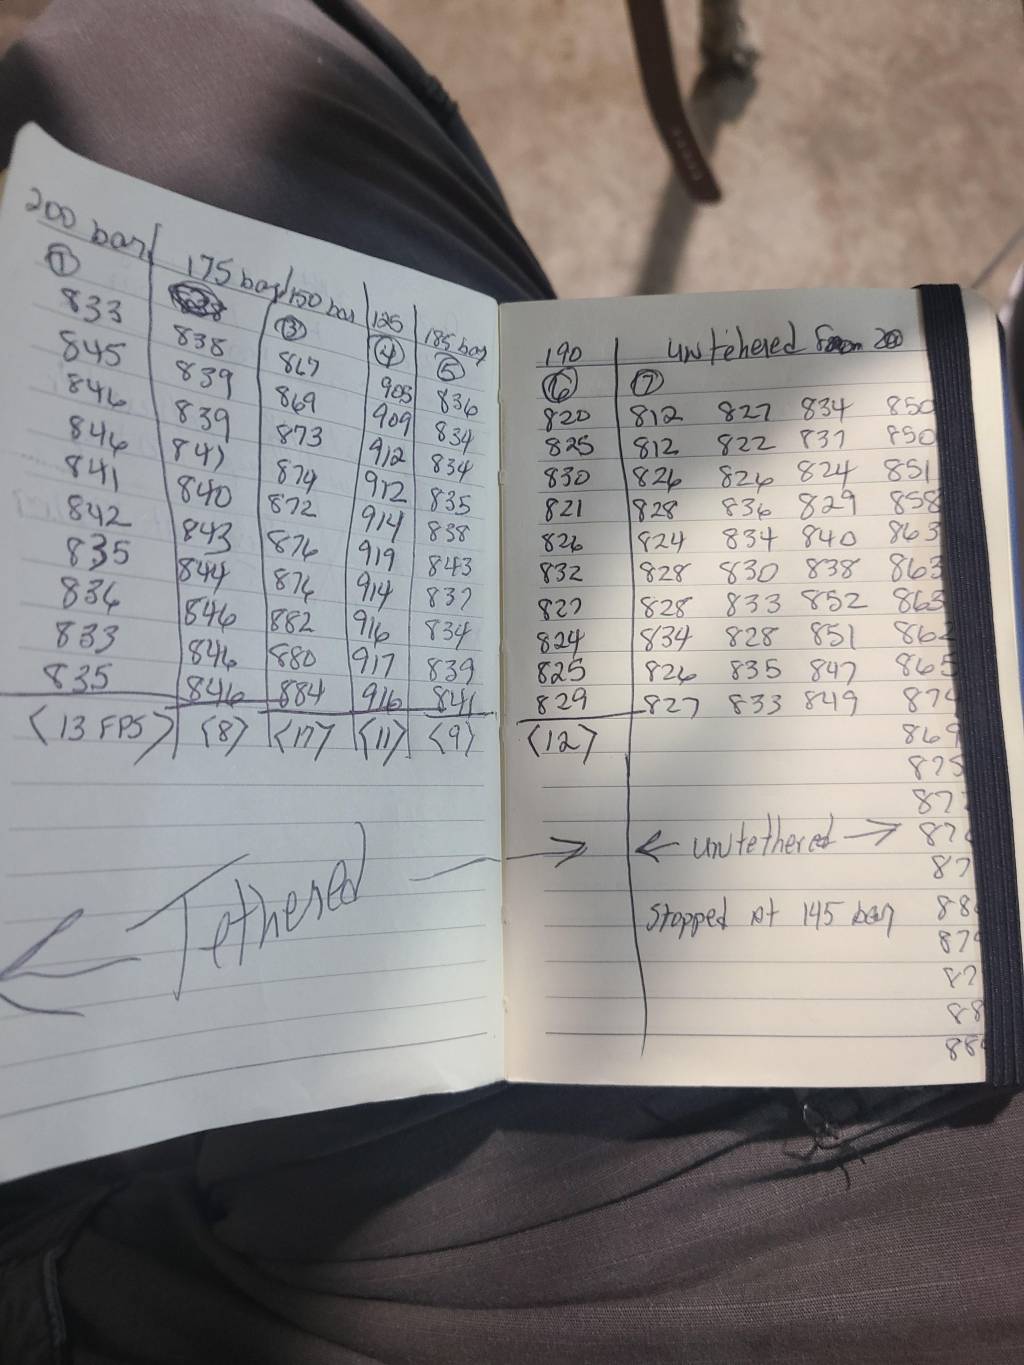 200 bar
①
833
845
846
846
841
842
835
836
833
835
<13 FPS>
175 bar
838
839
839
841
840
843
844
846
846
846
<8>
150 bar
③
867
869
873
874
872
876
876
882
880
884
<17>
125
④
905
909
912
912
914
919
914
916
917
916
<11>
185 bar
⑤
836
834
834
835
838
843
837
834
839
841
<9>
← Tethered →
190
⑥
820
825
830
821
826
832
827
824
825
829
<12>
untehered from 200
⑦
812 827 834 850
812 822 837 850
826 826 824 851
828 836 829 858
824 834 840 863
828 830 838 863
828 833 852 863
834 828 851
826 835 847 865
827 833 849
869
875
← untethered →
Stopped at 145 bar